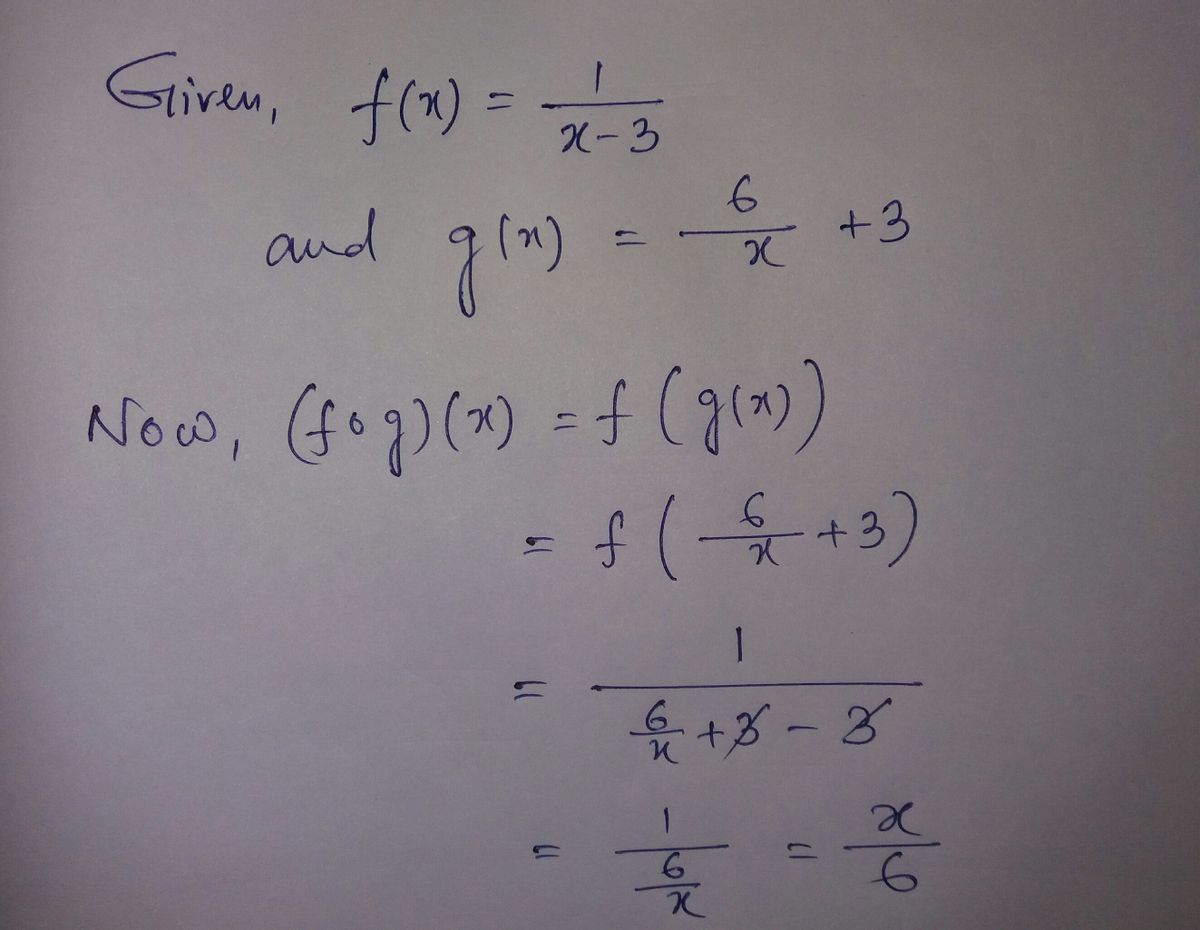 Given, f(x) = 1/(x-3)
and g(x) = 6/x +3
Now, (fog)(x) = f(g(x))
= f(6/x +3)
= 1/(6/x +3 - 3)
= 1/(6/x) = x/6